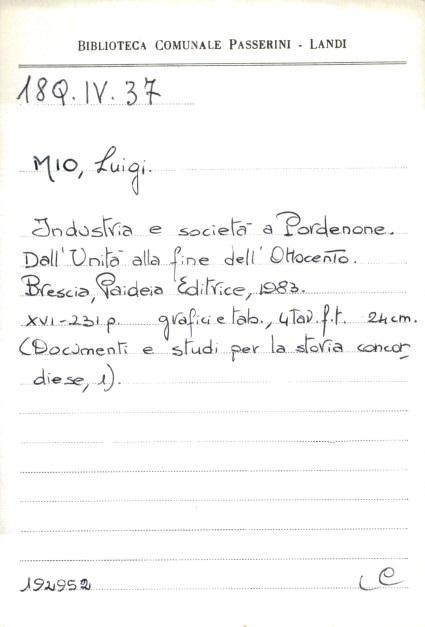 BIBLIOTECA COMUNALE PASSERINI - LANDI
18Q.IV.37
MIO, Luigi.
Industria e società a Pordenone.
Dall'Unità alla fine dell'Ottocento.
Brescia, Paideia Editrice, 1983.
XVI-231 p. grafici e tab., 4 Tav. f.t. 24 cm.
(Documenti e studi per la storia concor
diese, 1).
192952